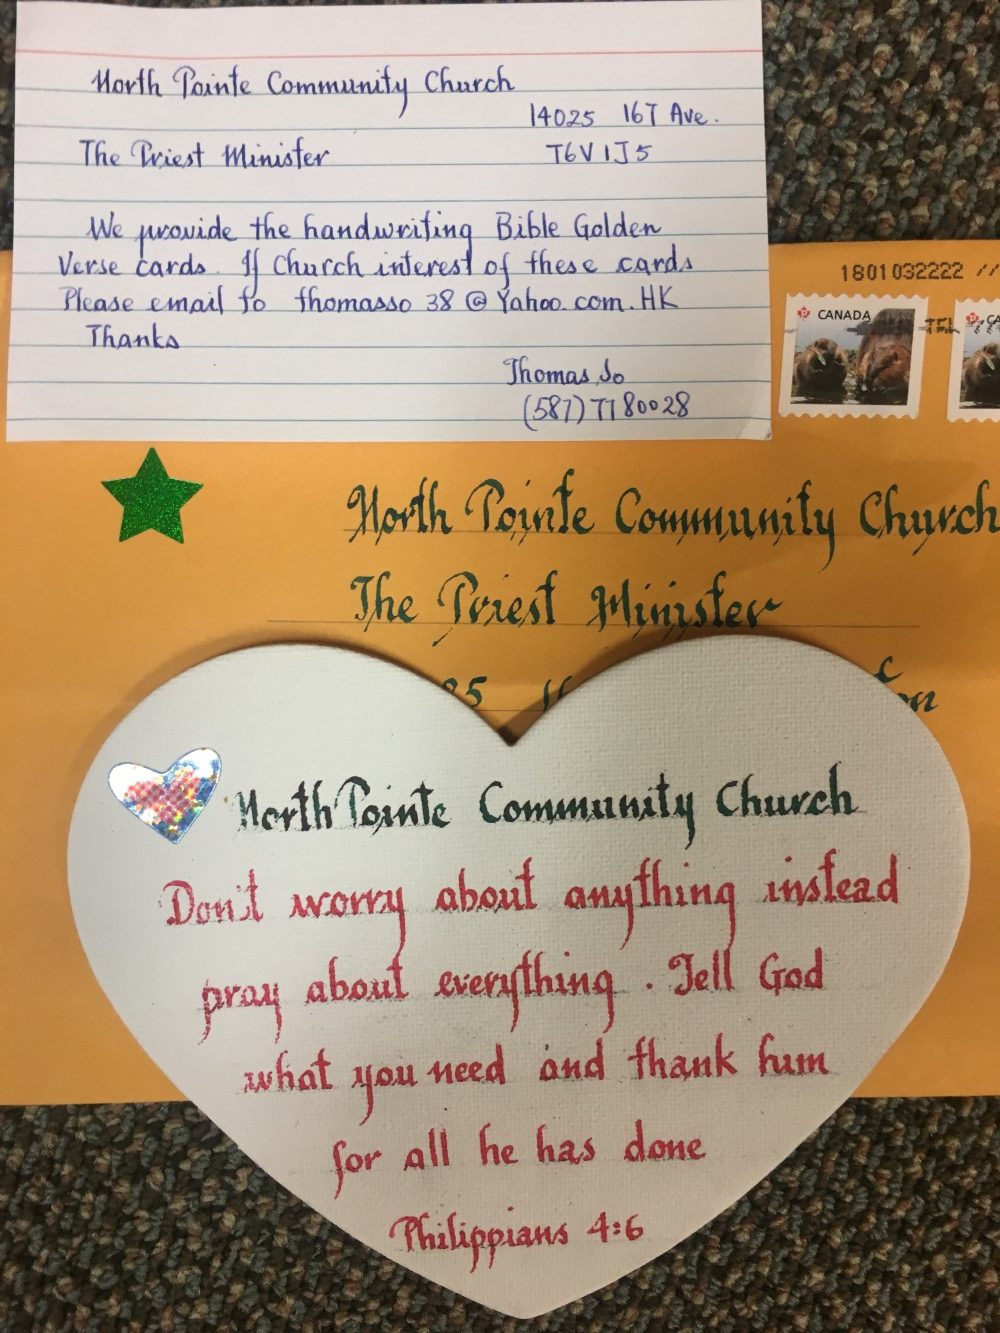 North Pointe Community Church
14025 167 Ave.
The Priest Minister
T6V 1J5
We provide the handwriting Bible Golden
Verse cards. If Church interest of these cards
Please email to thomasso 38 @ Yahoo.com.HK
Thanks
Thomas So
(587) 7780028
1801032222 //
CANADA
North Pointe Community Church
The Priest Minister
North Pointe Community Church
Don't worry about anything instead
pray about everything. Tell God
what you need and thank him
for all he has done
Philippians 4:6